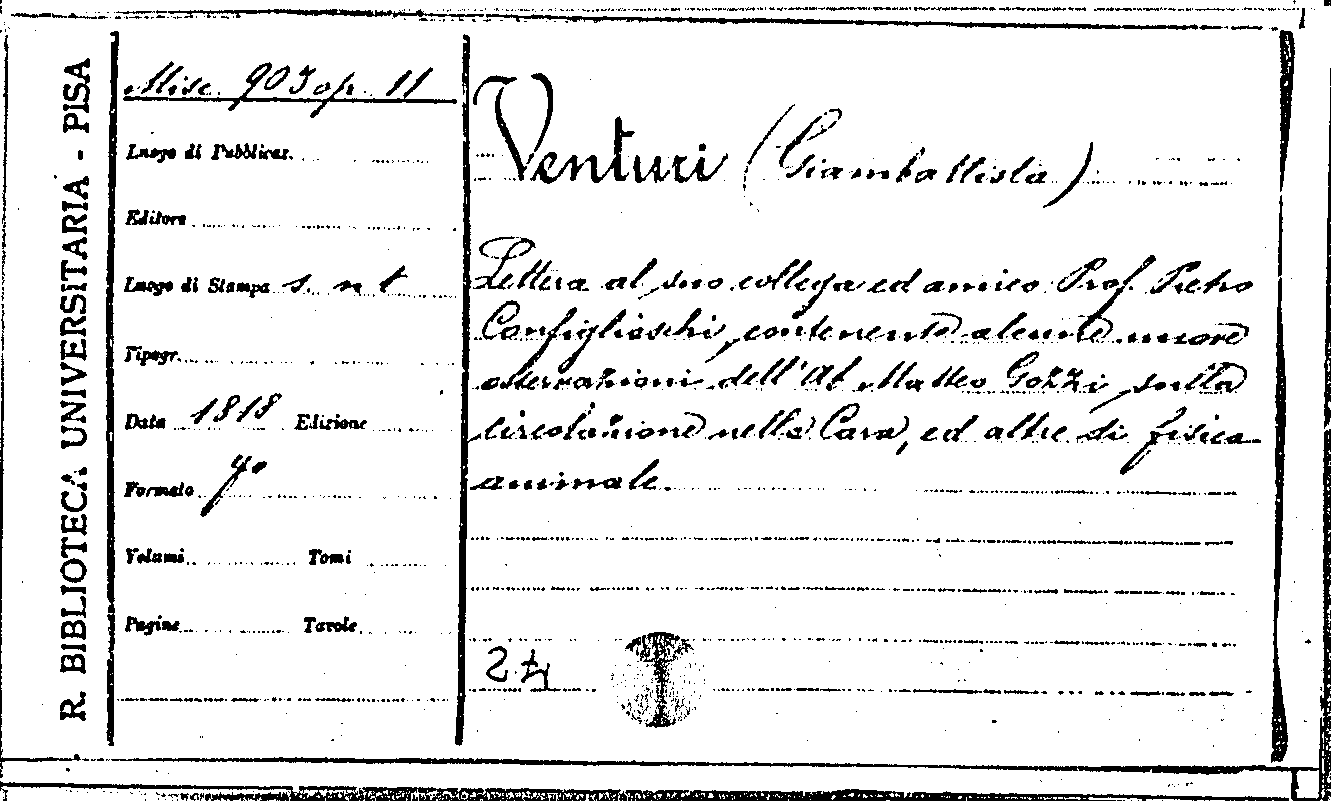 R. BIBLIOTECA UNIVERSITARIA - PISA
Misc. 903 op. 11
Luogo di Pubblicaz.
Editore
Luogo di Stampa s. n t
Tipogr.
Data 1818 Edizione
Formato 4º
Volumi Tomi
Pagine Tavole
Venturi (Giambattista)
Lettera al suo collega ed amico Prof. Pietro
Configliaschi, contenente alcune nuove
osservazioni dell'Ab Matteo Gozzi, sulla
circolazione nella Cara, ed altre di fisica
animale.